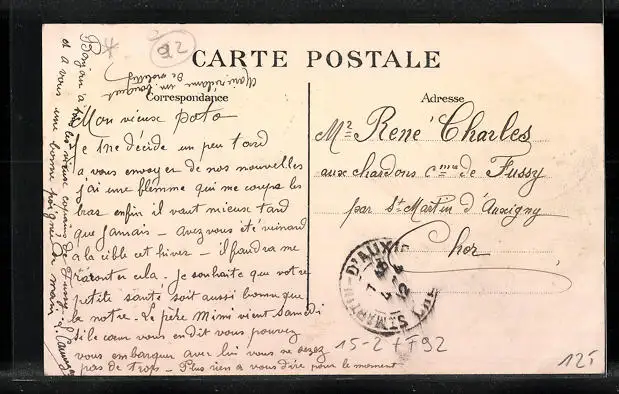 92
CARTE POSTALE
Marie réclame un bouquet
de violettes
Correspondance
Adresse
Mon vieux poto
Je me décide un peu tard
à vous envoyer de nos nouvelles
j'ai une flemme qui me coupe les
bras enfin il vaut mieux tard
que jamais – avez vous été vinard
à la cible cet hiver – il faudra me
raconter cela. Je souhaite que votre
petite santé soit aussi bonne que
la notre. Le père Mimi vient Samedi
si le cœur vous en dit vous pouvez
vous embarquer avec lui vous ne serez
pas de trop – Plus rien à vous dire pour le moment
Bonjour à tous les vieux copains de Fussy
et à vous une bonne poignée de main
Mr René Charles
aux chardons Cmne de Fussy
par St Martin d'Auxigny
Cher
ST MARTIN-D'AUXIGNY
CHER
15-2 + T92
12T